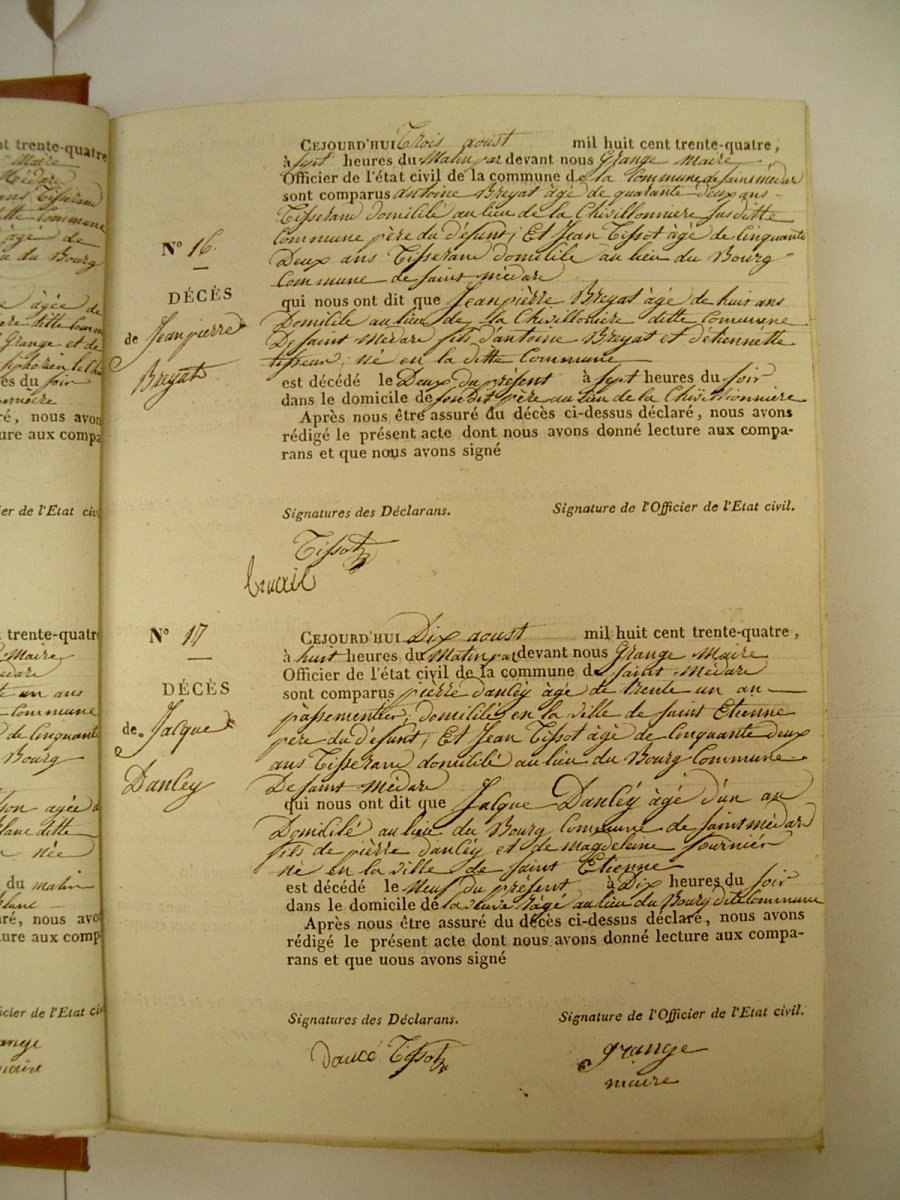 nt trente-quatre
Maire
Médare
ans Tisserand
ditte commune
âgé de
du Bourg
âgée de
ditte comm
Grange et de
es du soir
ré, nous avon
ure aux compa
er de l'Etat civ
trente-quatr
Maire
édare
te un ans
Commune
de cinquante
Bourg
son agée d
lane ditte
née
du matin
lane
ré, nous avo
ure aux comp
icier de l'Etat ci
ange
maire
CEJOURD'HUI Trois aoust mil huit cent trente-quatre,
à sept heures du Matin par devant nous Grange Maire
Officier de l'état civil de la commune de la Commune de saint médar
sont comparus antoine Breyat âgé de quarante deux ans
Tisserand domicilié au lieu de la Chivillonniere susditte
Commune père du défunt; Et Jean Tissot âgé de Cinquante
Nº 16.
Deux ans Tisserand domicilié au lieu du Bourg
Commune de saint médare
DÉCÈS
qui nous ont dit que Jeanpièrre Breyat âgé de huit ans
de Jeanpierre
Domicilié au lieu de la Chivillonière ditte commune
De saint Médare fils d'antoine Breyat et d'étiennette
Breyat
tisseur; né en la ditte Commune
est décédé le Deux du présent à sept heures du soir
dans le domicile de sondit père au lieu de la Chivillionnière
Après nous être assuré du décès ci-dessus déclaré, nous avons
rédigé le présent acte dont nous avons donné lecture aux compa-
rans et que nous avons signé
Signatures des Déclarans. Signature de l'Officier de l'Etat civil.
Tissot
Nº 17
CEJOURD'HUI Dix aoust mil huit cent trente-quatre,
à huit heures du Matin par devant nous Grange Maire
Officier de l'état civil de la commune de Saint Médare
DÉCÈS
sont comparus pièrre Danley âgé de trente un an
passementier, domicilié en la ville de saint Etienne
de Jalque
père du défunt, Et Jean Tissot âgé de Cinquante deux
ans Tisserand domicilié au lieu du Bourg Commune
Danley
De saint Médare
qui nous ont dit que Jalque Danléy âgé d'un an
Domicilié au lieu du Bourg Commune de saint médar
fils de pièrre danléy et de magdeleine fournier
né en la ville de saint Etienne
est décédé le Neuf du présent à Dix heures du soir
dans le domicile de la veuve Bagé au lieu du Bourg dite Commune
Après nous être assuré du décès ci-dessus déclaré, nous avons
rédigé le présent acte dont nous avons donné lecture aux compa-
rans et que uous avons signé
Signatures des Déclarans. Signature de l'Officier de l'Etat civil.
Tissot grange
maire